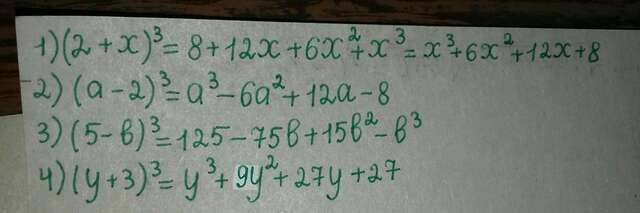 1) (2+x)³ = 8+12x+6x²+x³ = x³+6x²+12x+8
2) (a-2)³ = a³-6a²+12a-8
3) (5-b)³ = 125-75b+15b²-b³
4) (y+3)³ = y³+9y²+27y+27